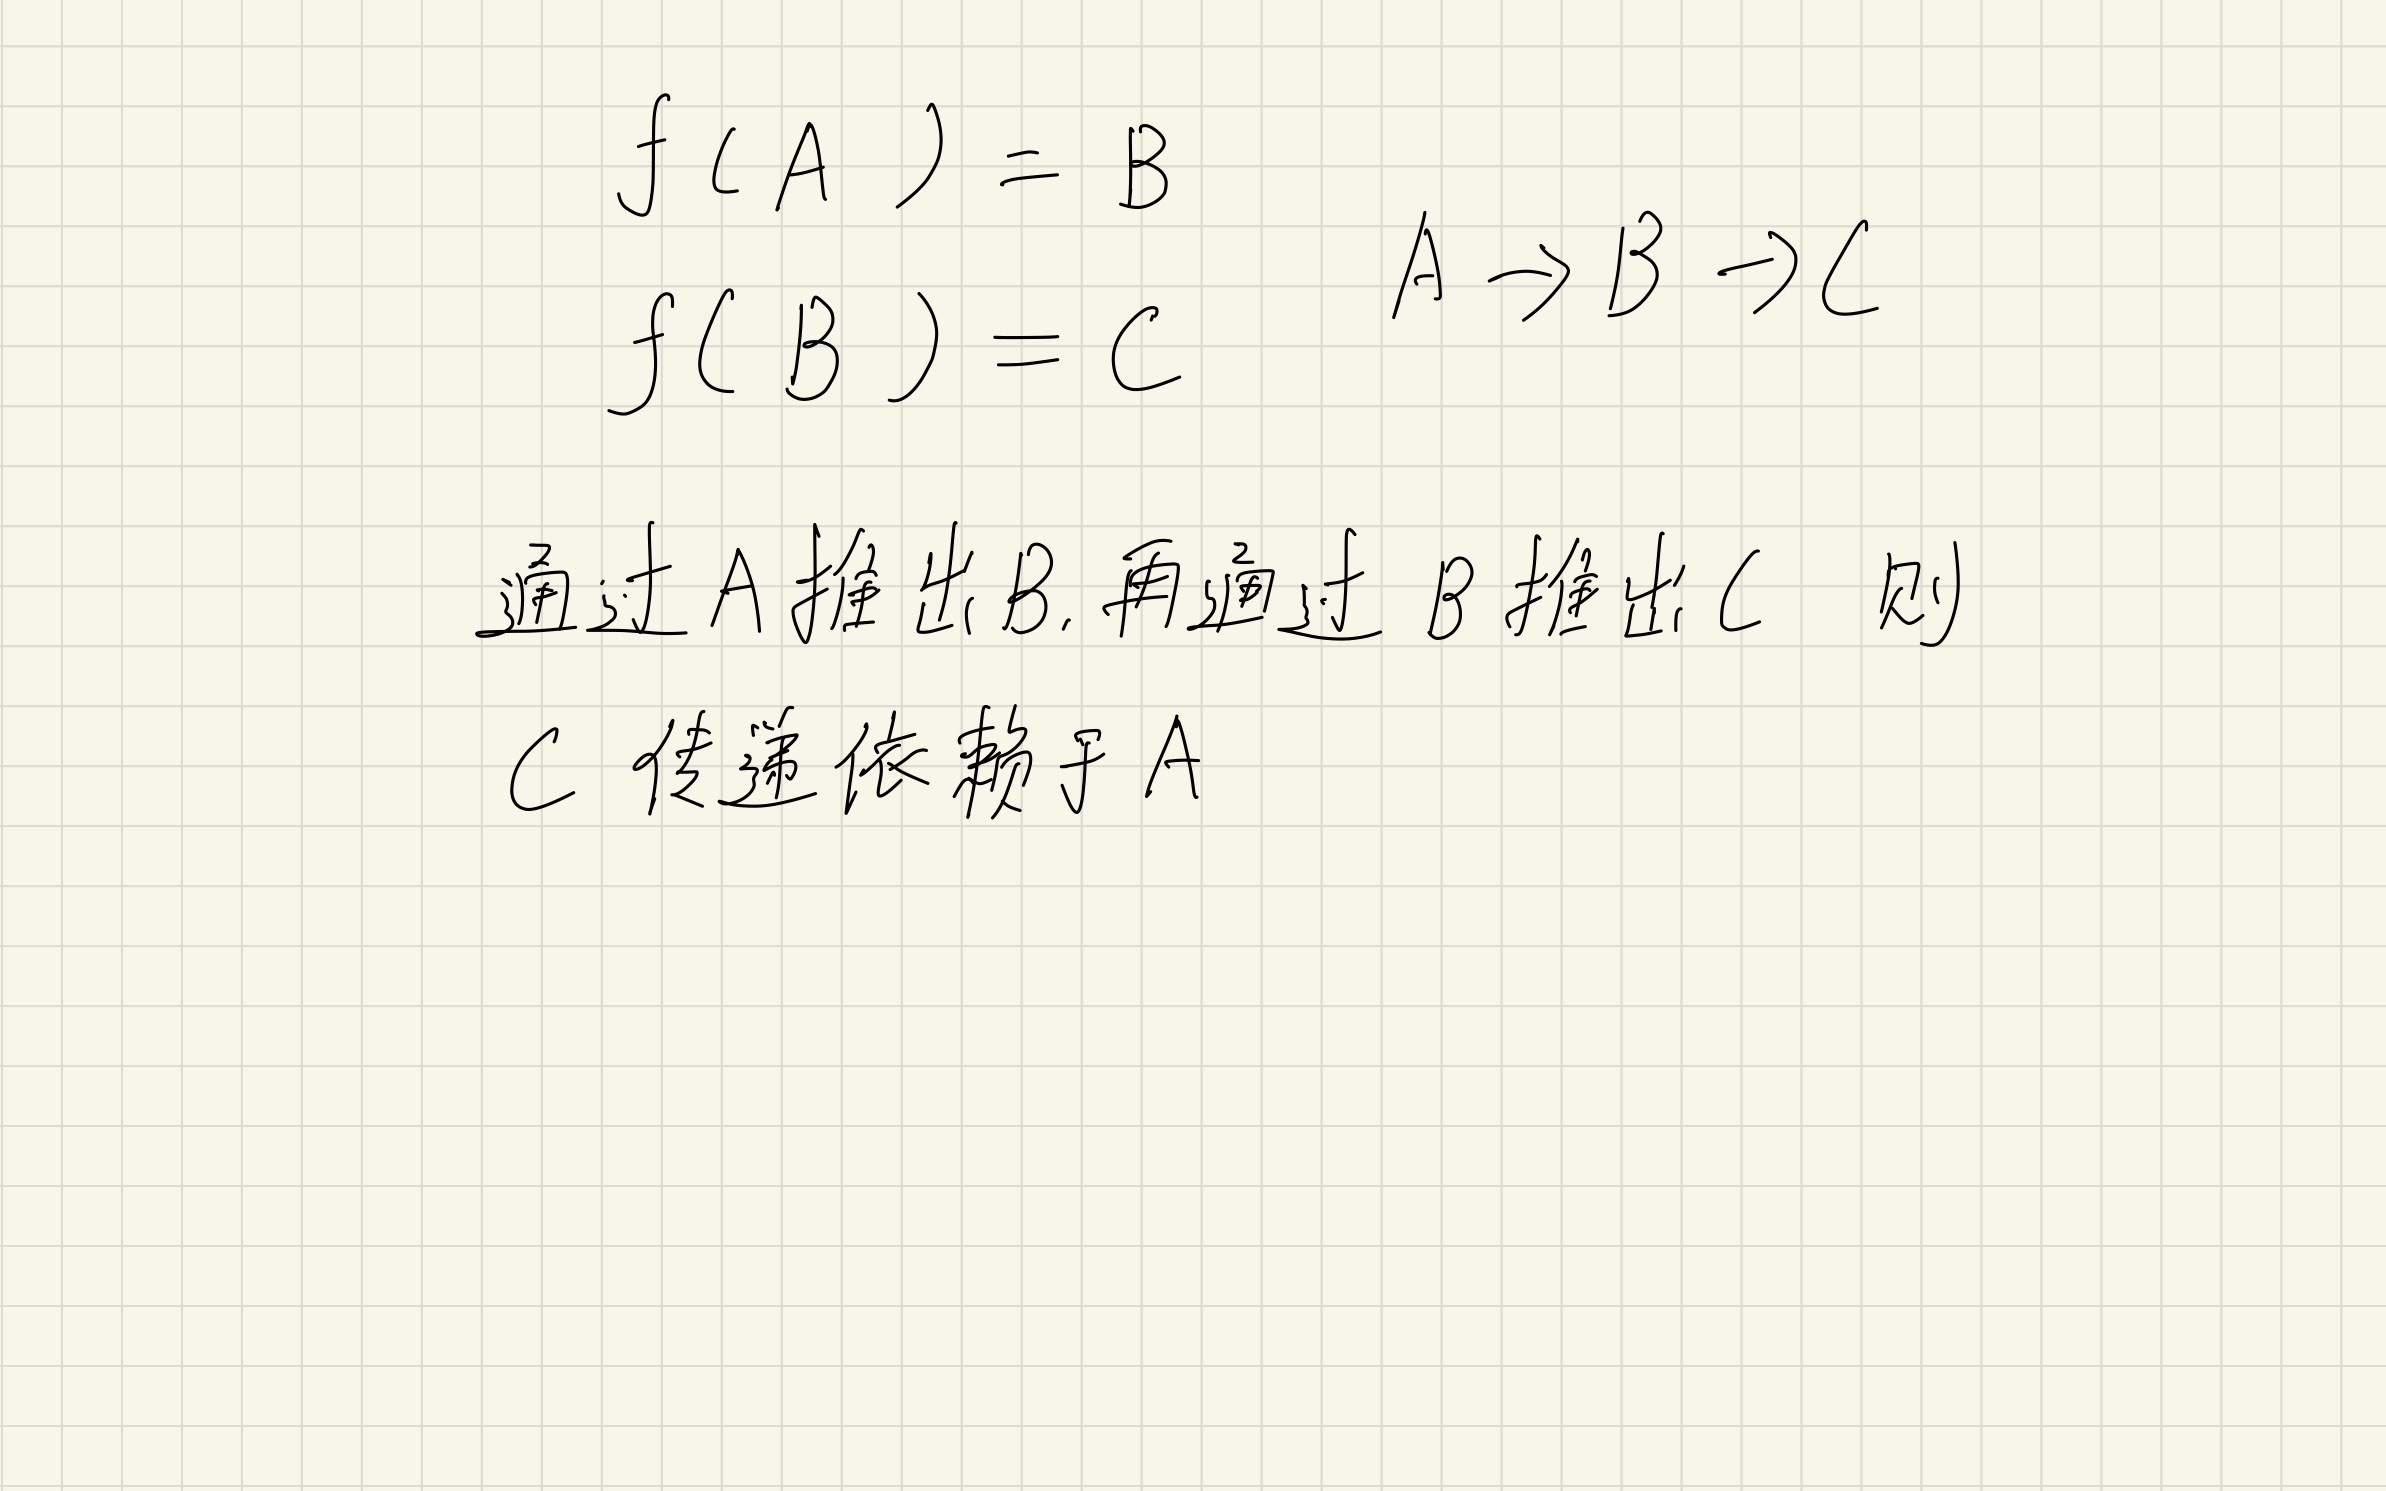 f(A) = B
A → B → C
f(B) = C
通过A推出B,再通过B推出C 则
C 传递依赖于A